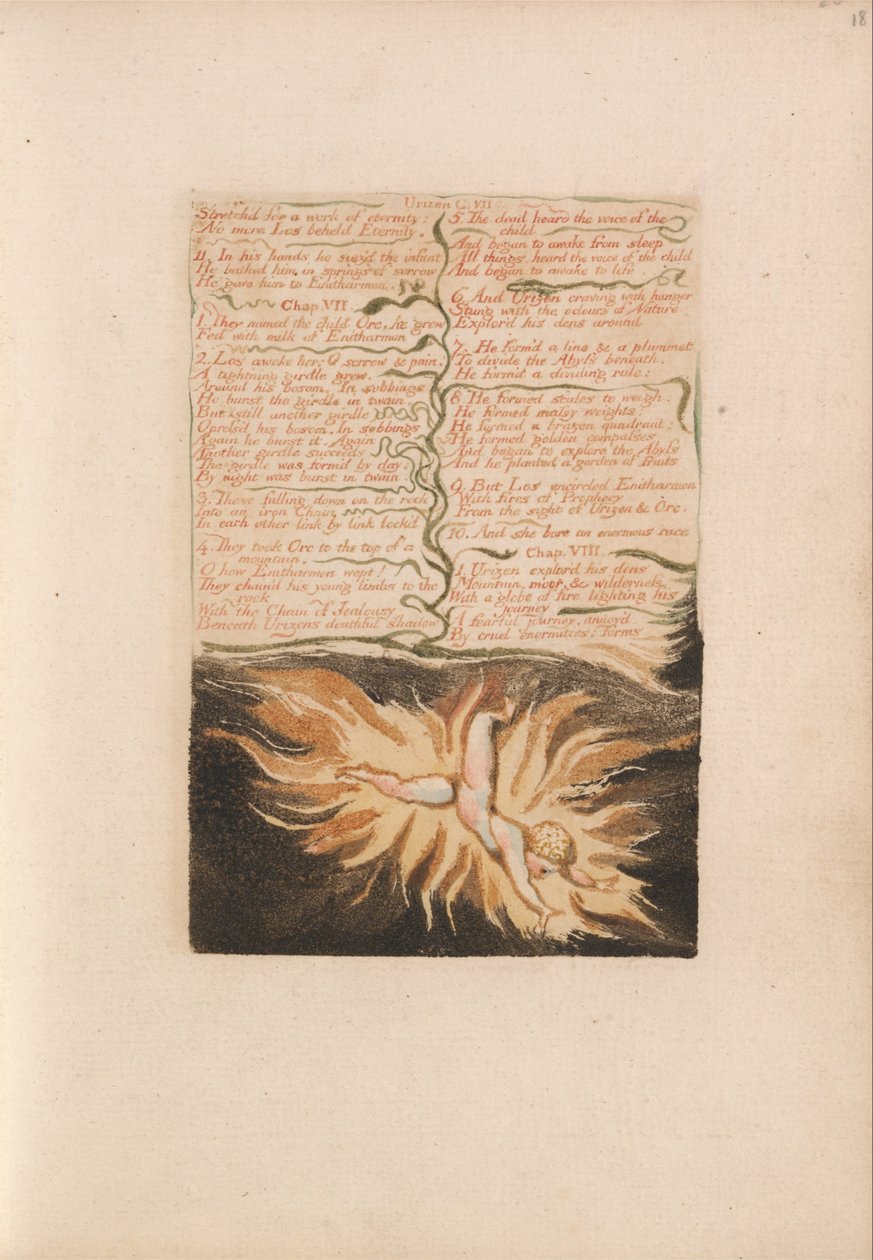 18
Urizen C: VII
Stretch'd for a work of eternity:
No more Los beheld Eternity.
11. In his hands he siez'd the infant
He bathed him in springs of sorrow
He gave him to Enitharmon.
Chap. VII
1. They named the child Orc, he grew
Fed with milk of Enitharmon
2. Los awoke her; O sorrow & pain!
A tightning girdle grew,
Around his bosom. In sobbings
He burst the girdle in twain,
But still another girdle
Opress'd his bosom. In sobbings
Again he burst it. Again
Another girdle succeeds
The girdle was form'd by day;
By night was burst in twain.
3. These falling down on the rock
Into an iron Chain
In each other link by link lock'd
4. They took Orc to the top of a
mountain.
O how Enitharmon wept!
They chain'd his young limbs to the
rock
With the Chain of Jealousy
Beneath Urizens deathful shadow
5. The dead heard the voice of the
child
And began to awake from sleep
All things. heard the voice of the child
And began to awake to life.
6. And Urizen craving with hunger
Stung with the odours of Nature
Explor'd his dens around
7. He form'd a line & a plummet
To divide the Abyss beneath.
He form'd a dividing rule:
8. He formed scales to weigh;
He formed massy weights;
He formed a brazen quadrant;
He formed golden compasses
And began to explore the Abyss
And he planted a garden of fruits
9. But Los encircled Enitharmon
With fires of Prophecy
From the sight of Urizen & Orc.
10. And she bore an enormous race
Chap. VIII.
1. Urizen explor'd his dens
Mountain, moor, & wilderness,
With a globe of fire lighting his
journey
A fearful journey, annoy'd
By cruel enormities: forms